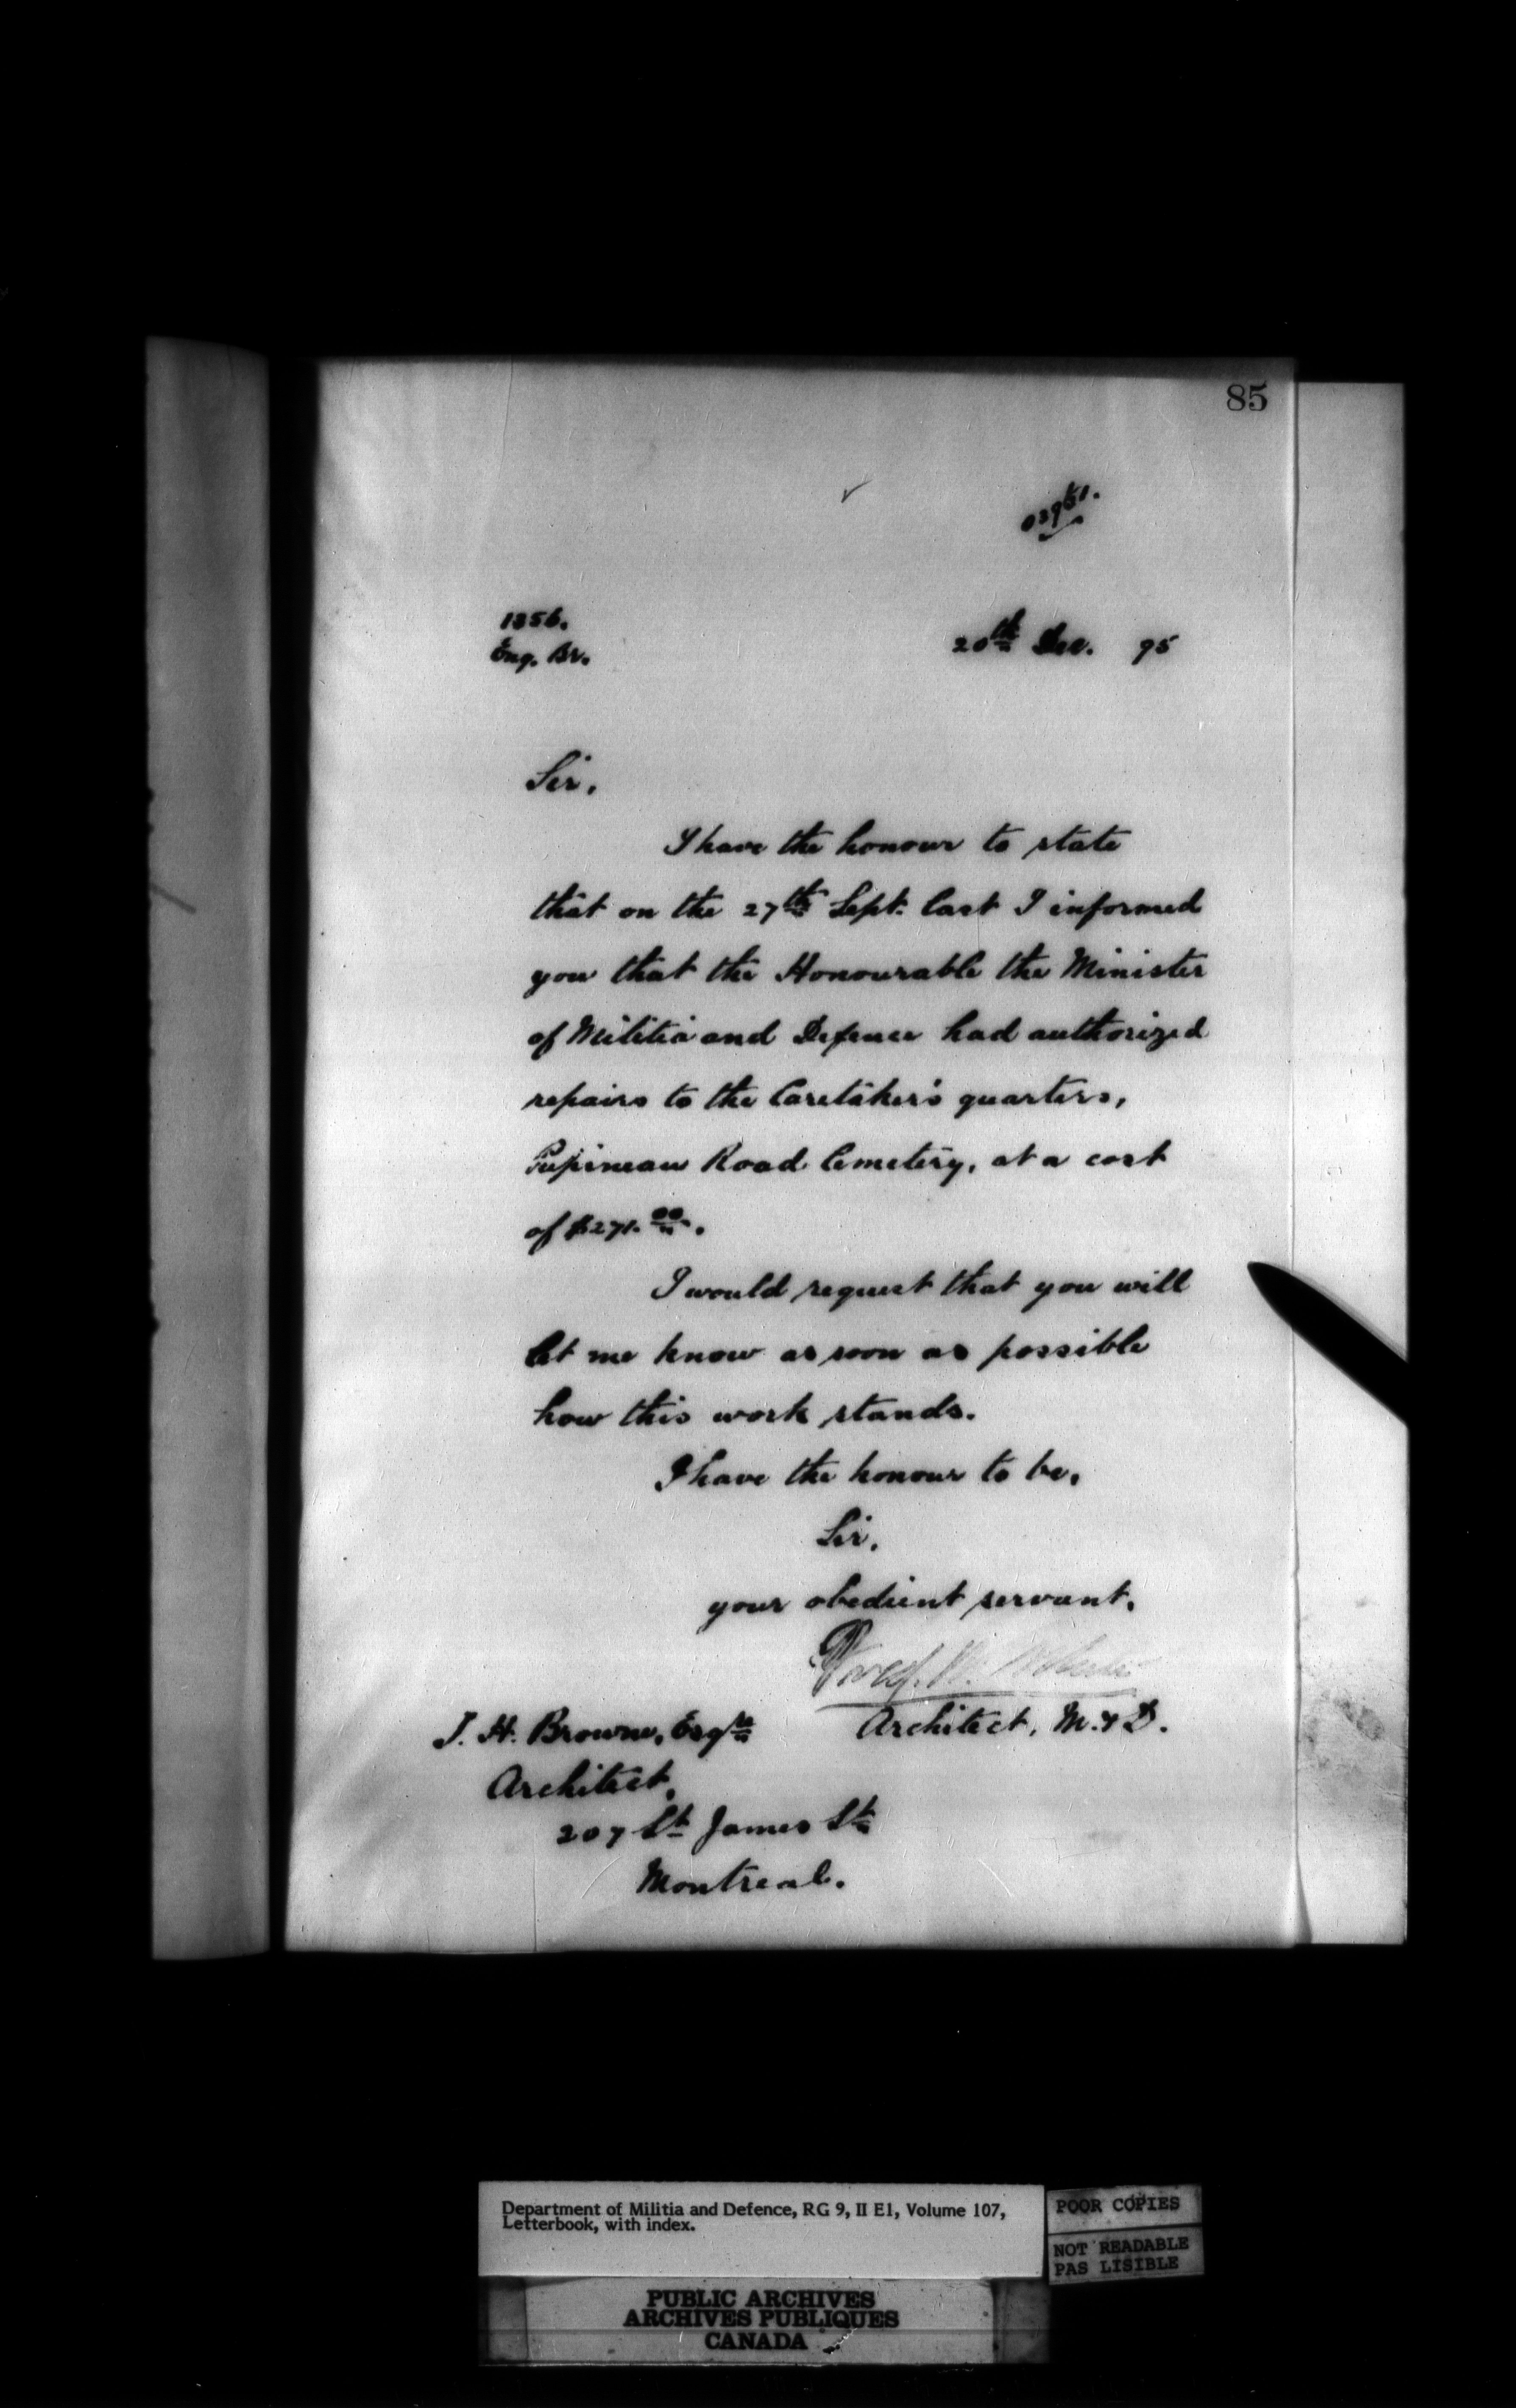 85
1356.
Eng. Br.
20th Dec. 95
Sir,
I have the honour to state
that on the 27th Sept. last I informed
you that the Honourable the Minister
of Militia and Defence had authorized
repairs to the Caretaker's quarters,
Papineau Road Cemetery, at a cost
of $271.00.
I would request that you will
let me know as soon as possible
how this work stands.
I have the honour to be,
Sir,
your obedient servant,
Architect, M. & D.
J. H. Browne, Esqre
Architect,
207 St James St
Montreal.
Department of Militia and Defence, RG 9, II E1, Volume 107,
Letterbook, with index.
POOR COPIES
NOT READABLE
PAS LISIBLE
PUBLIC ARCHIVES
ARCHIVES PUBLIQUES
CANADA